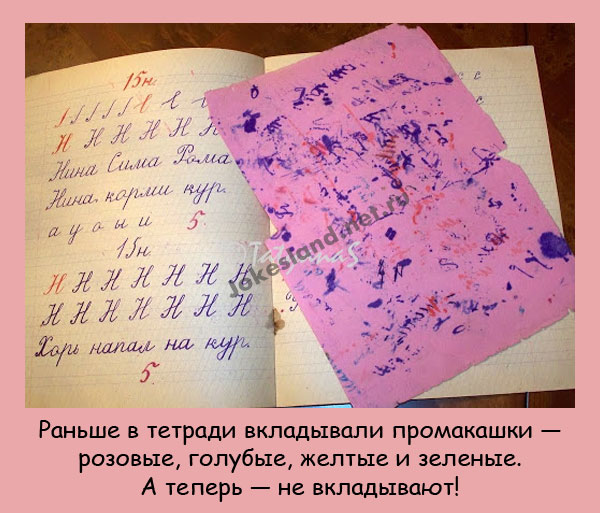 15н.
Н Н Н Н Н Н
Нина Сима Рома
Нина. корми кур.
а у о ы и 5.
15н.
Н Н Н Н Н Н Н
Н Н Н Н Н Н Н
Хорь напал на кур.
5.
TatyanaS
Jokesland.net.ru
Раньше в тетради вкладывали промакашки —
розовые, голубые, желтые и зеленые.
А теперь — не вкладывают!